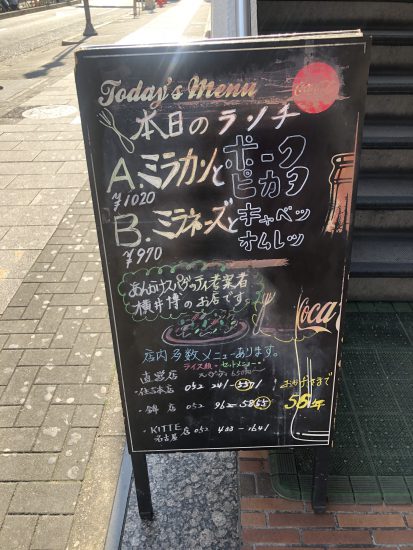 Today's Menu
Coca-Cola
本日のランチ
A.ミラカンとポークピカタ
¥1020
B.ミラネーズとキャベツオムレツ
¥970
あんかけスパゲッティ考案者
横井博のお店です。
Coca
店内多数メニューあります。
ライス類・セットメニュー
スパゲティ650円〜
直営店
・住吉本店 052 241-5571
・錦店 052 962-5855
・KITTE名古屋店 052 433-1641
おかげさまで
58年